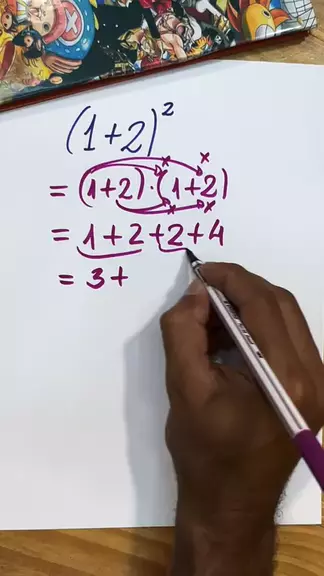 (1+2)²
= (1+2)·(1+2)
= 1+2+2+4
= 3+